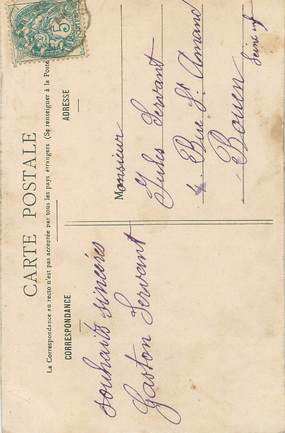 CARTE POSTALE
La Correspondance au recto n'est pas acceptée par tous les pays étrangers (Se renseigner à la Poste)
CORRESPONDANCE
ADRESSE
souhaits sincères
Gaston Servant
Monsieur
Jules Servant
Rue St Amand
Rouen
Seine inf